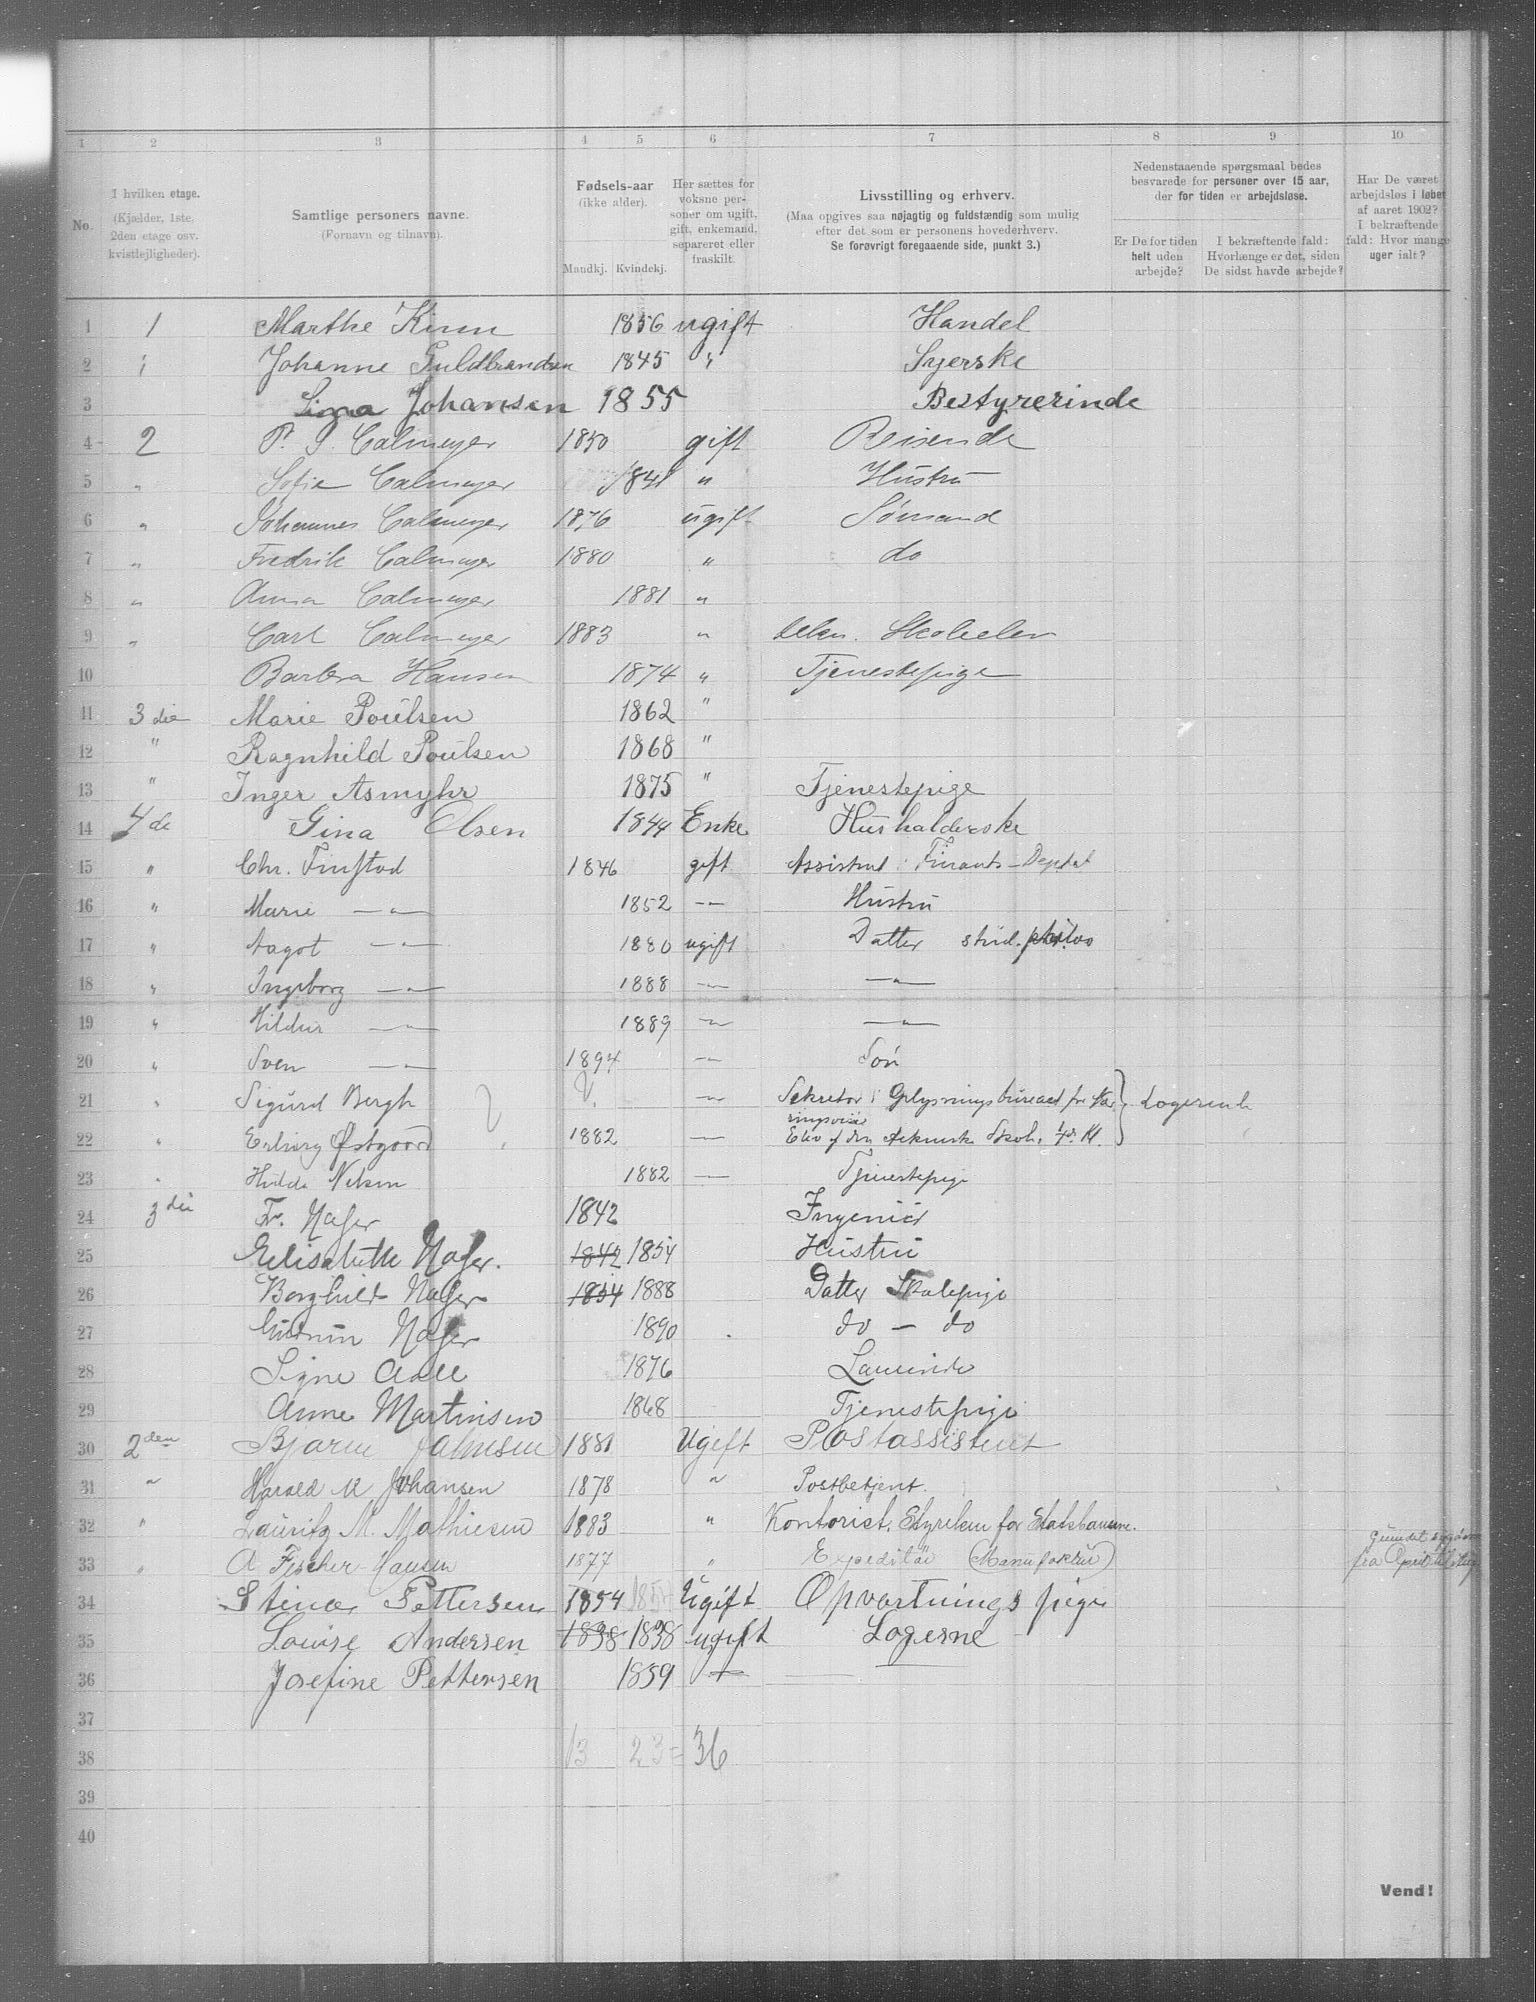 1 2 3 4 5 6 7 8 9 10
No.
I hvilken etage.
(Kjælder, 1ste,
2den etage osv.
kvistlejligheder).
Samtlige personers navne.
(Fornavn og tilnavn).
Fødsels-aar
(ikke alder).
Mandkj. Kvindekj.
Her sættes for
voksne per-
soner om ugift,
gift, enkemand,
separeret eller
fraskilt.
Livsstilling og erhverv.
(Maa opgives saa nøjagtig og fuldstændig som mulig
efter det som er personens hovederhverv.
Se forøvrigt foregaaende side, punkt 3.)
Nedenstaaende spørgsmaal bedes
besvarede for personer over 15 aar,
der for tiden er arbejdsløse.
Er De for tiden
helt uden
arbejde?
I bekræftende fald:
Hvorlænge er det, siden
De sidst havde arbejde?
Har De været
arbejdsløs i løbet
af aaret 1902?
I bekræftende
fald: Hvor mange
uger ialt?
1 1 Marthe 1856 ugift Handel
2 1 Johanne Guldbrandsen 1845 " Syerske
3 Johansen 1855 Bestyrerinde
4 2 P. Calmeyer 1850 gift Reisende
5 " Sofie Calmeyer 1841 " Hustru
6 " Johannes Calmeyer 1876 ugift Sømand
7 " Fredrik Calmeyer 1880 " do
8 " Anna Calmeyer 1881 "
9 " Carl Calmeyer 1883 " Skoleelev
10 Barbra Hansen 1874 " Tjenestepige
11 3die Marie Poulsen 1862 "
12 " Ragnhild Poulsen 1868 "
13 " Inger Asmyhr 1875 " Tjenestepige
14 4de Gina Olsen 1844 Enke Husholderske
15 " Chr. Finstad 1846 gift Assistent i Finants-Deptet
16 " Marie —"— 1852 —"— Hustru
17 " Aagot —"— 1880 ugift Datter stud. philos
18 " Ingeborg —"— 1888 —"— —"—
19 " Hildur —"— 1889 —"— —"—
20 " Sven —"— 1894 —"— Søn
21 " Sigurd Bergh —"— Sekretær i Oplysningsbureaet for Næ Logerende
ringsveie
22 " Erling Østgaard 1882 —"— Elev af den tekniske Skole, 4de Kl.
23 " Hilda Nilsen 1882 —"— Tjenestepige
24 3die Fr. Naser 1842 Ingeniør
25 Elisabeth Naser. 1842 1854 Hustru
26 Borghild Naser 1854 1888 Datter Skolepige
27 Gudrun Naser 1890 do — do
28 Signe Aall 1876 Lærerinde
29 Anne Martinsen 1868 Tjenestepige
30 2den Bjarne 1881 Ugift Postassistent
31 " Harald K Johansen 1878 " Postbetjent.
32 " Lauritz M. Mathiesen 1883 " Kontorist. Styrelsen for Statsbanerne.
33 " A Fischer-Hansen 1877 " Expeditør (Manufaktur) fra April
34 Stina Pettersen 1854 1854 Ugift Opvartnings pige
35 Louise Andersen 1838 1838 ugift Logerne
36 Josefine Pettersen 1859 —"— ——
37
38 13 23 = 36
39
40
Vend!